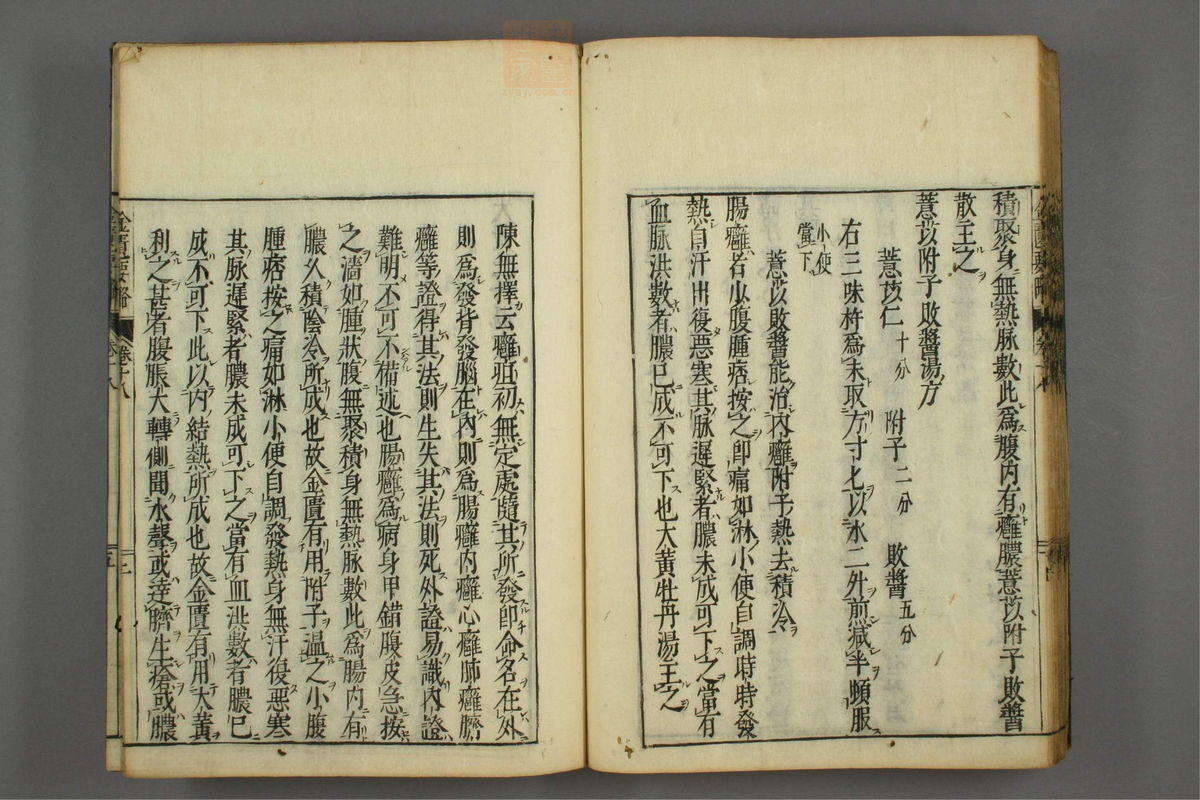 積聚身無熱脉數此爲腹内有癰膿薏苡附子敗醬
散主之
薏苡附子敗醬湯方
薏苡仁十分 附子二分 敗醬五分
右三味杵爲末取方寸匕以水二升煎減半頓服
小便當下
薏苡敗醬能治内癰附子熱去積冷
腸癰者小腹腫痞按之卽痛如淋小便自調時時發
熱自汗出復惡寒其脉遲緊者膿未成可下之當有
血脉洪數者膿已成不可下也大黄牡丹湯主之
陳無擇云癰疽初無定處隨其所發卽命名在外
則爲發背發腦在内則爲腸癰内癰心癰肺癰臍
癰等證得其法則生失其法則死外證易識内證
難明不可不備述也腸癰爲病身甲錯腹皮急按
之濡如腫狀腹無聚積身無熱脉數此爲腸内有
膿久積陰冷所成也故金匱有用附子温之小腹
腫痞按之痛如淋小便自調發熱身無汗復惡寒
其脉遲緊者膿未成可下之當有血洪數者膿已
成不可下此以内結熱所成也故金匱有用大黄
利之甚者腹脹大轉側聞水聲或遶臍生瘡或膿
金匱要略 卷十八